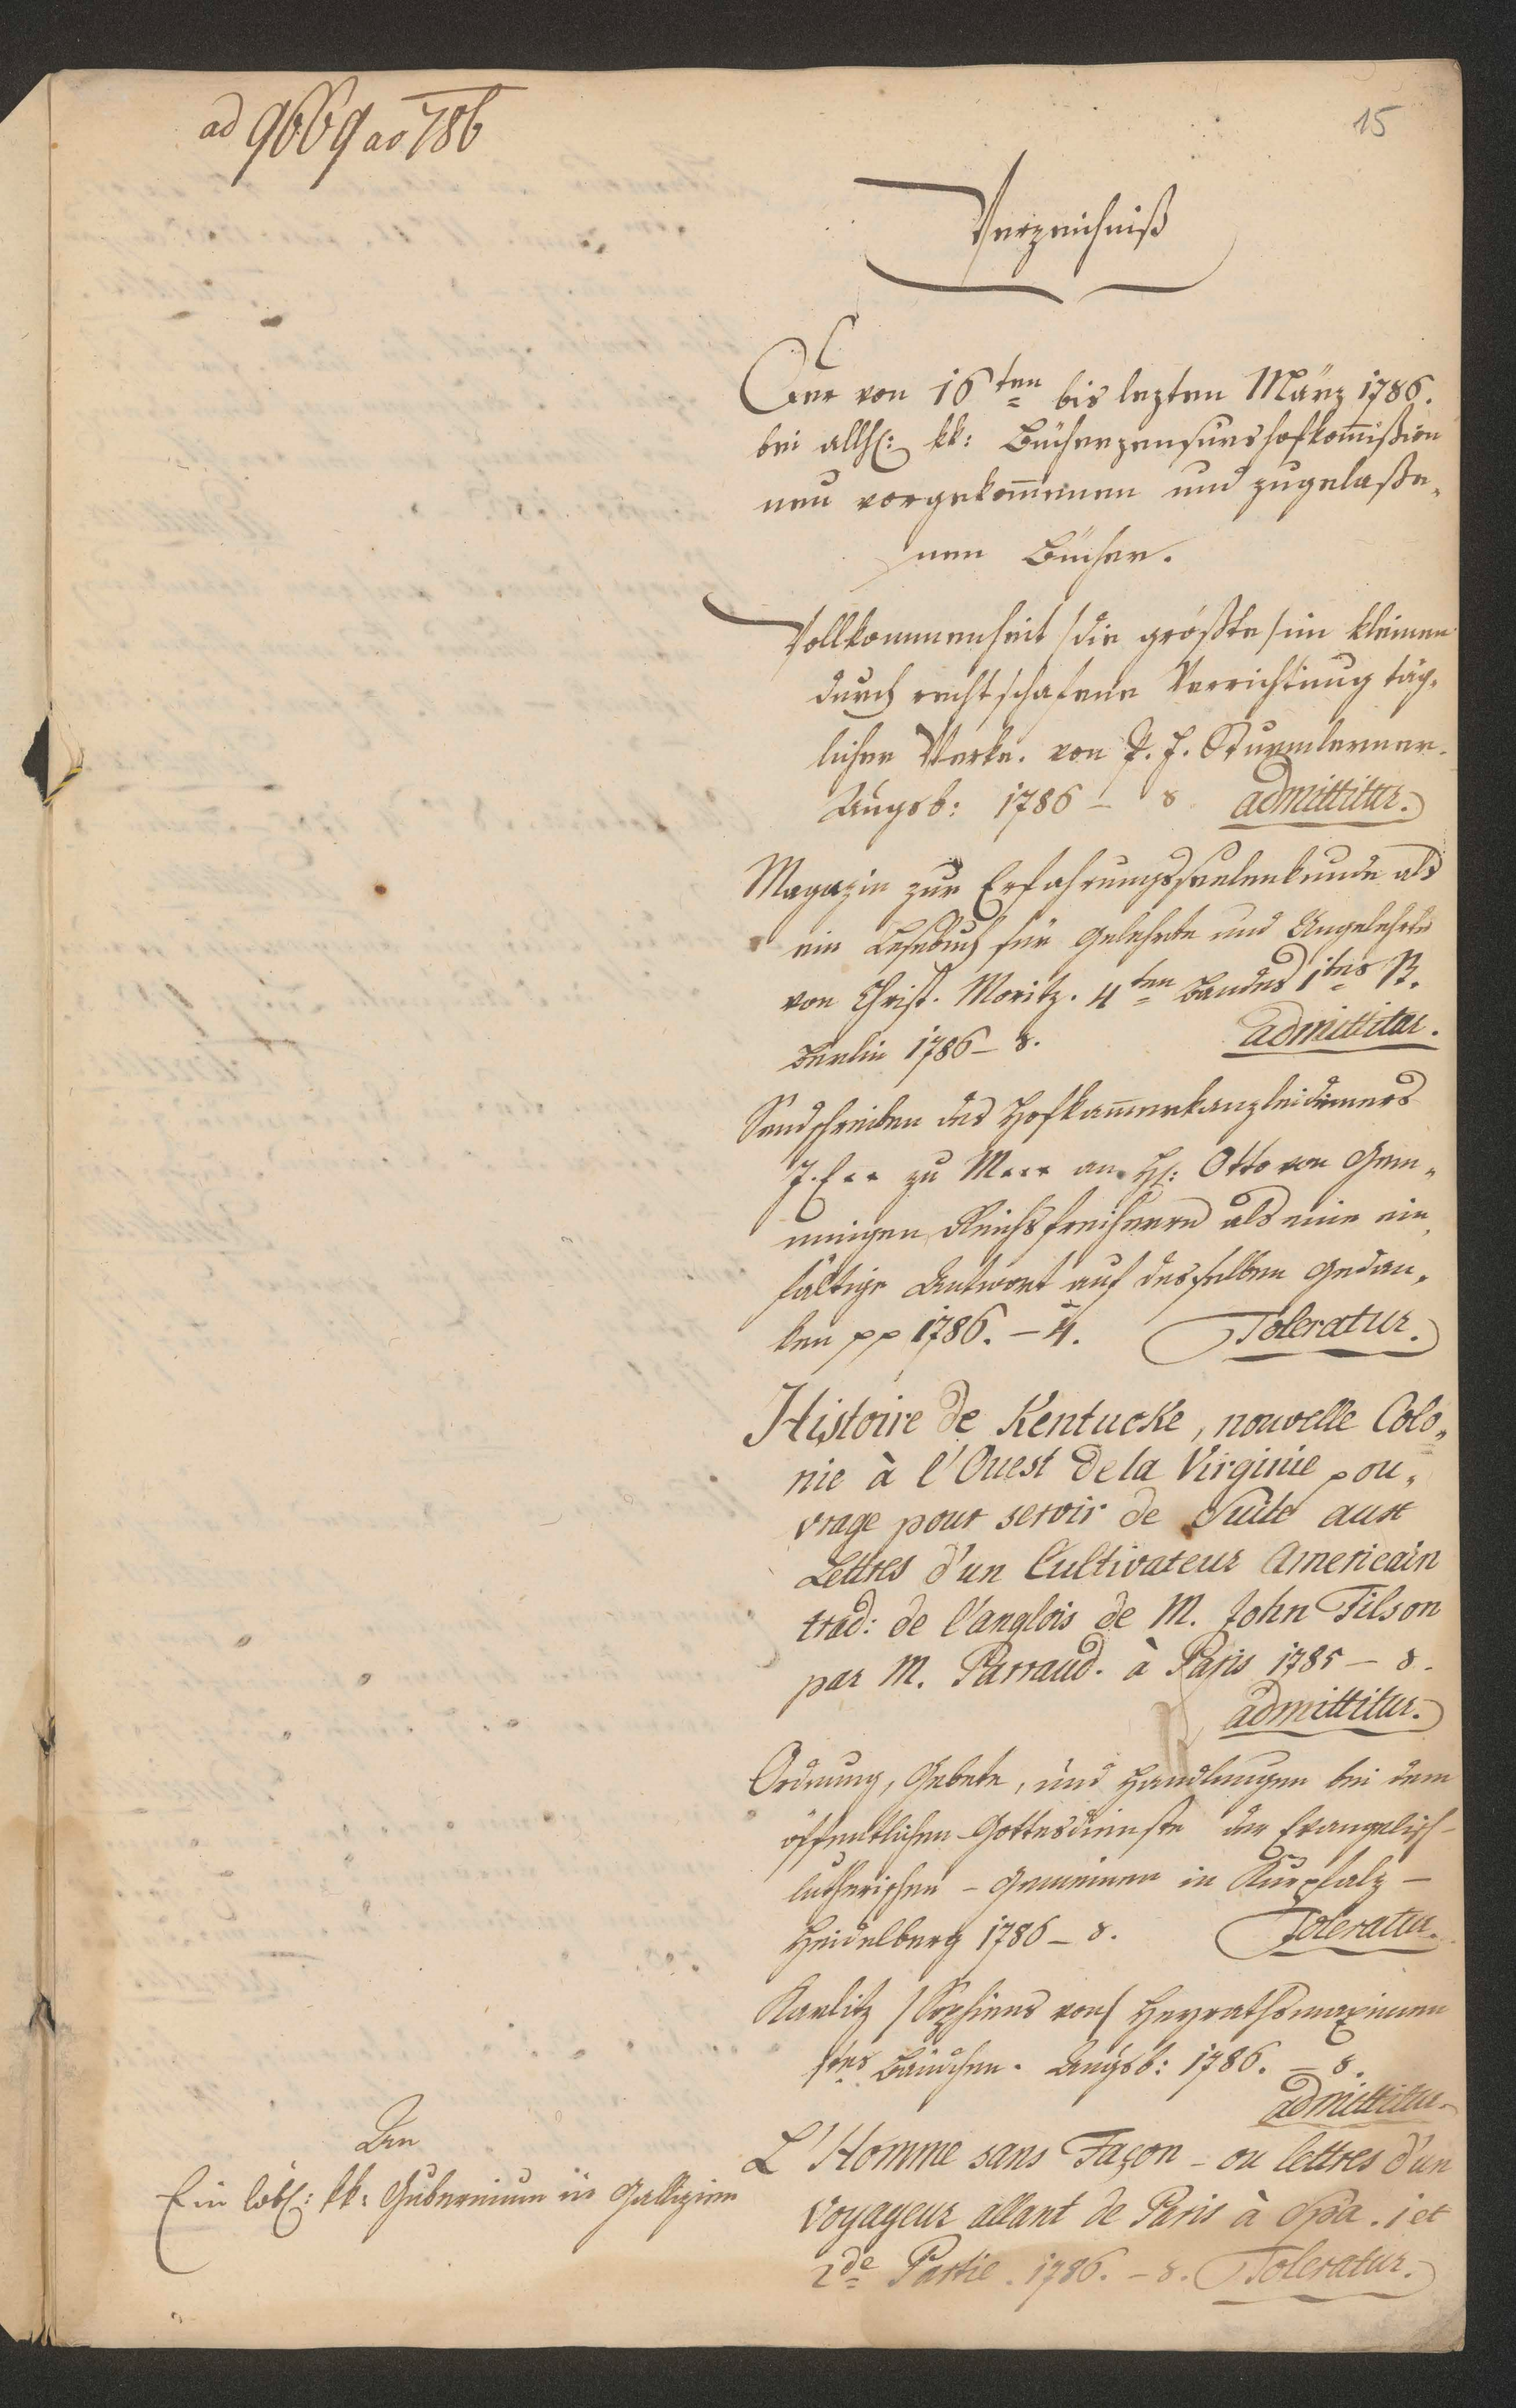 ad 9669 ao 786
15
Verzeichniß
Der von 16ten bis lezten März 1786.
bei allh: kk: Bücherzensurshofkom̄ißion
neu vorgekom̄enen und zugelaße„
nen Bücher.
Vollkommenheit /die größte/ im kleinen
durch rechtschafene Verrichtung täg„
licher Werke. von P. J. Sturmlerner.
Augsb: 1786 – 8. admittitur.
Magazin zur Erfahrungsseelenkunde als
ein Lesebuch für Gelehrte und Ungelehrte
von Christ. Moritz. 4ten Bandes 1tes St.
Berlin 1786 – 8. admittitur.
Sendschreiben des Hofkam̄erkanzleidieners
J. E.. zu M... an H: Otto von Gem„
mingen Reichsfreiherrn als eine ein„
fältige Antwort auf desselben Gedan„
ken pp 1786. – 4. Toleratur.
Histoire de Kentucke, nouvelle Colo„
nie à l'Ouest de la Virginie, ou„
vrage pour servir de Suite aux
Lettres d'un Cultivateur Americain
trad: de l'anglois de M. John Filson
par M. Parraud. à Paris 1785 – 8.
admittitur.
Ordnung, Gebete, und Handlungen bei dem
öffentlichen Gottesdienste der Evangelisch–
lutherischen – Gemeinen in Kurpfalz –
Heidelberg 1786 – 8. Toleratur.
Karlitz /Sophiens von/ Heyrathsmaximen
1tes Bändchen. Augsb: 1786. – 8.
admittitur.
L'Homme sans Façon – ou lettres d'un
Voyageur allant de Paris à Spa. 1 et
2de Partie. 1786. – 8. Toleratur.
An
Ein löbl: kk: Gubernium in Gallizien